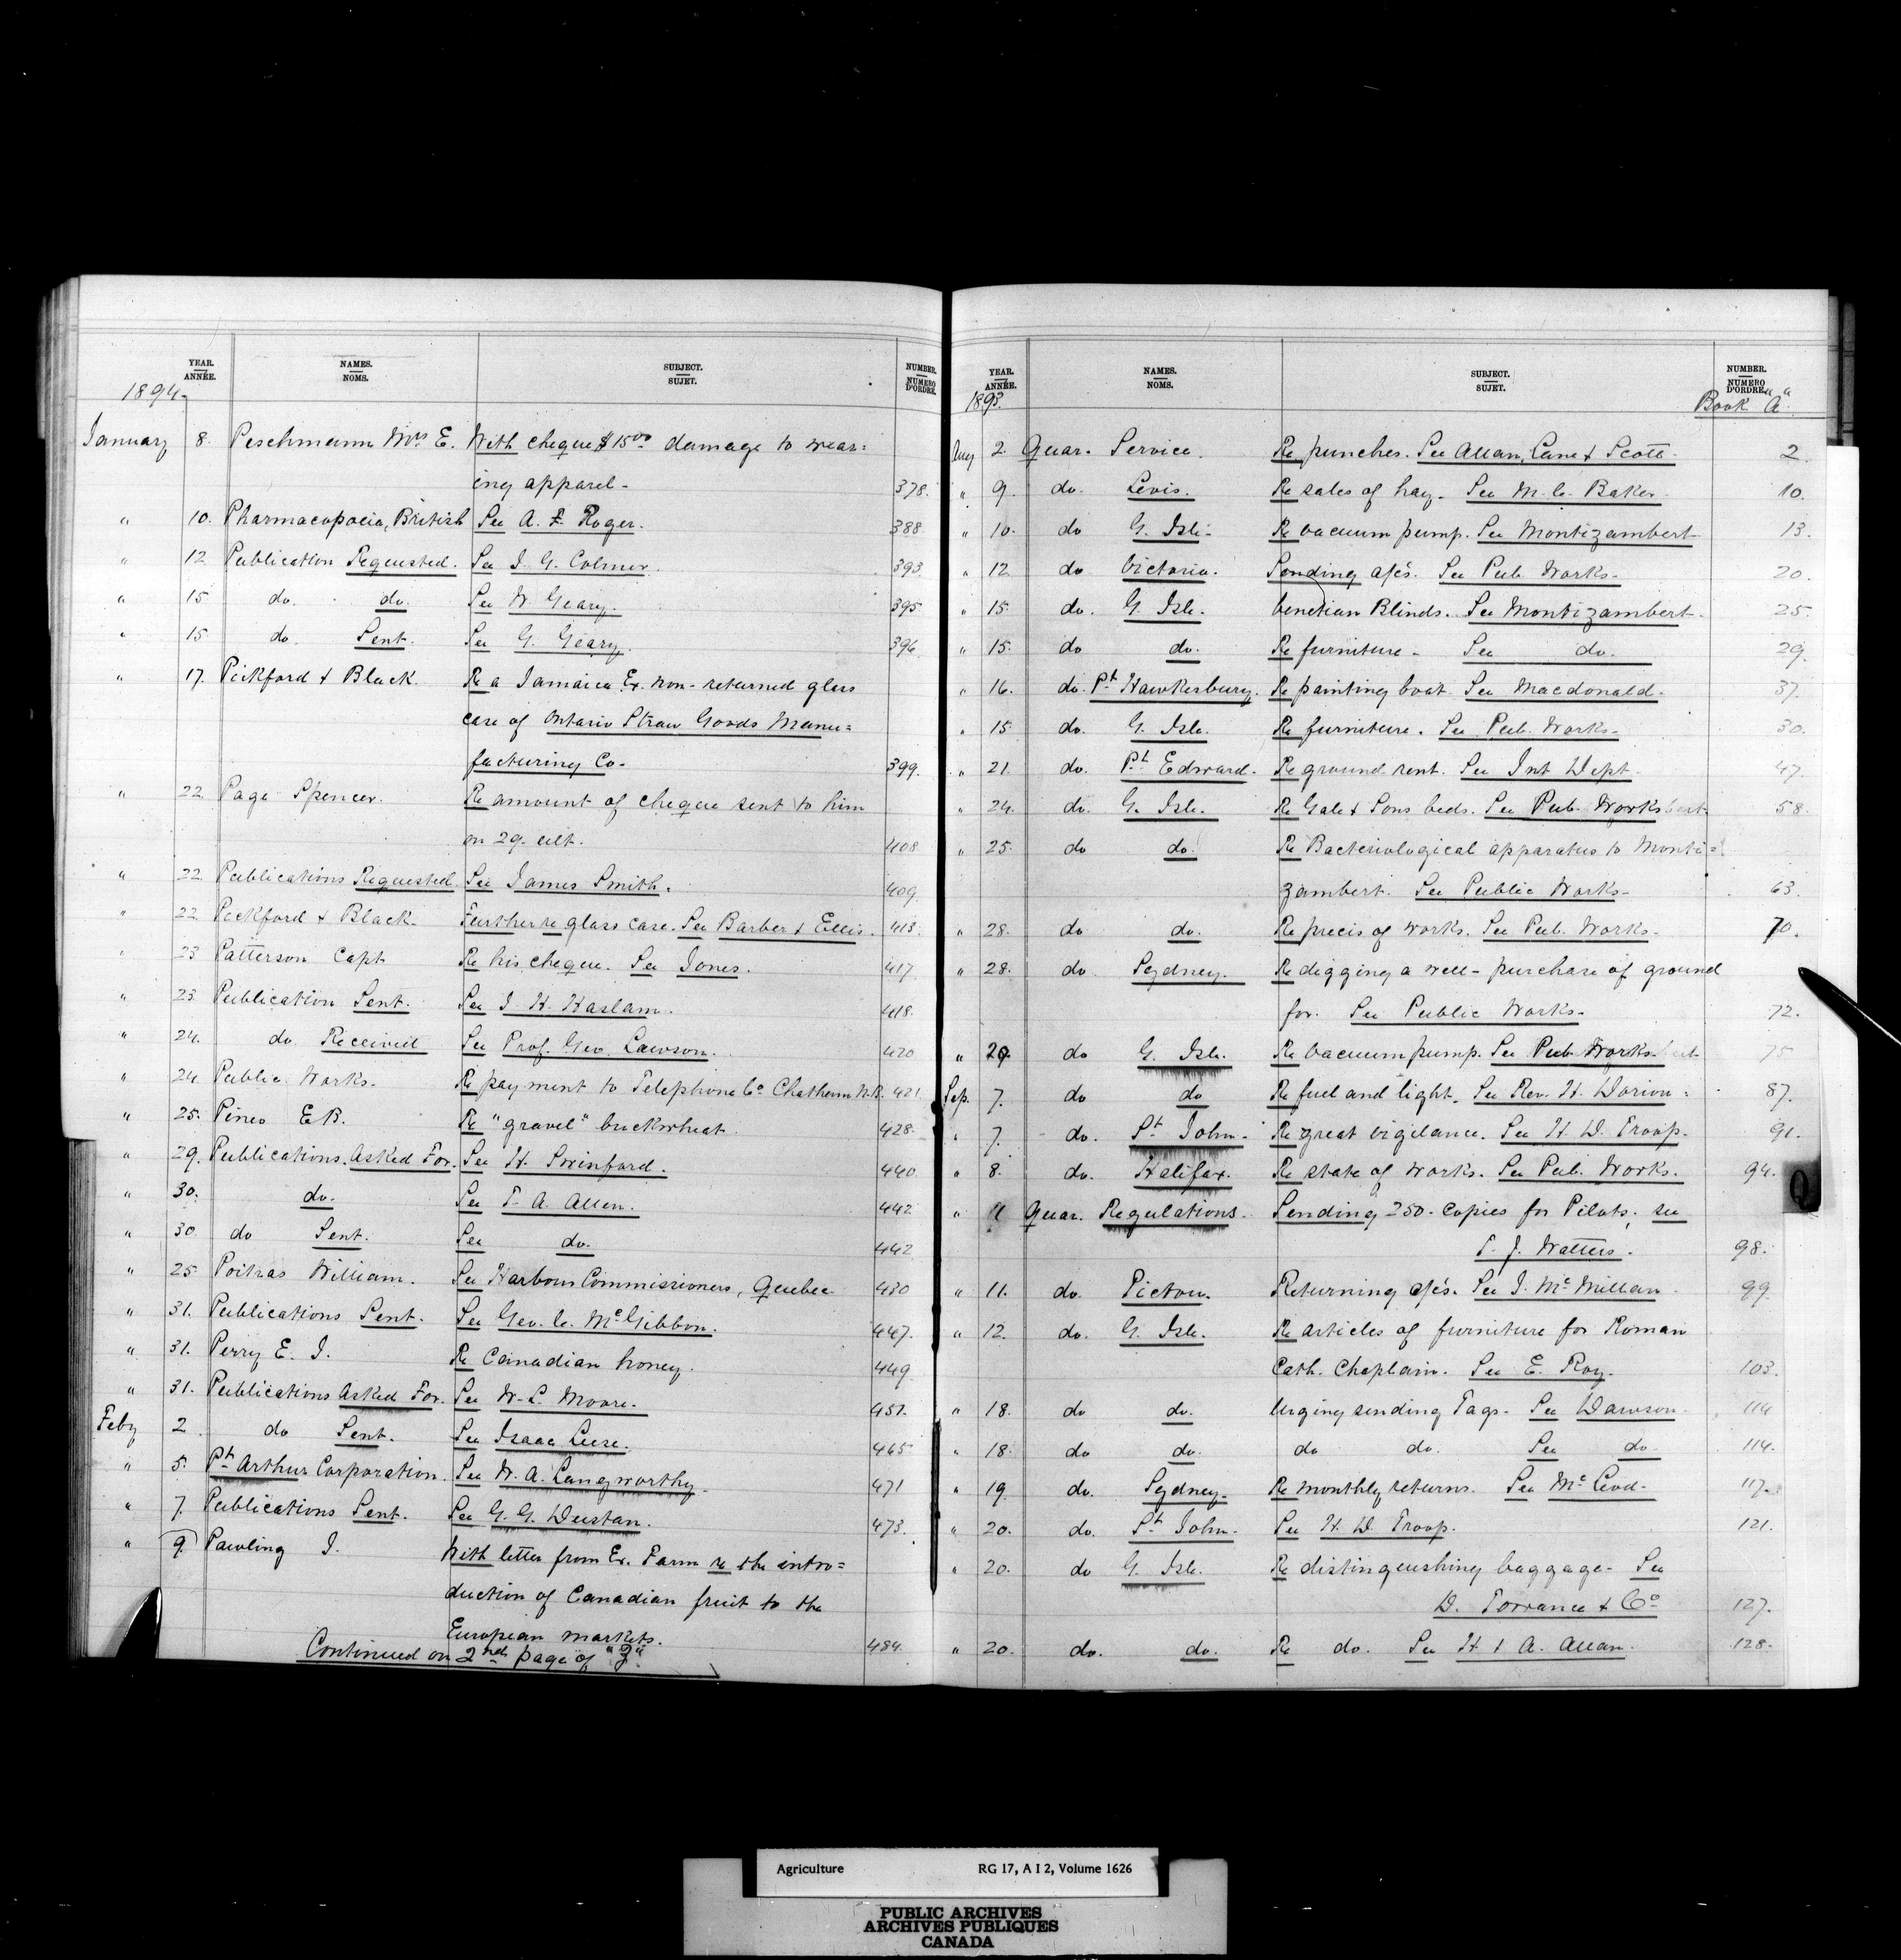 YEAR. ANNÉE. NAMES. NOMS. SUBJECT. SUJET. NUMBER. NUMERO D'ORDRE.
1894.
January 8. Peschmann Mrs E. With cheque $15.00 damage to wear=
ing apparel- 378.
" 10. Pharmacopoeia, British See A. F. Roger. 388
" 12 Publication Requested. See J. G. Colmer. 393
" 15 do. do. See W Geary. 395
" 15 do. Sent. See G. Geary. 396
" 17. Pickford & Black. Re a Jamaica Ex. non-returned glass
case of Ontario Straw Goods Manu=
facturing Co- 399.
" 22. Page Spencer. Re amount of cheque sent to him
on 29. ult. 408
" 22. Publications Requested See James Smith. 409
" 22. Pickford & Black. Further re glass case. See Barber & Ellis. 413.
" 23 Patterson Capt Re his cheque. See Jones. 417
" 23. Publication Sent. See J. H. Haslam. 418.
" 24. do. Received See Prof. Geo. Lawson. 420
" 24. Public Works. Re payment to Telephone Co. Chatham N.B. 421.
" 25. Pineo E B. Re "gravel" buckwheat. 428
" 29. Publications Asked For. See H. Swinford. 440
" 30. do. See T. A. Allen. 442
" 30. do Sent. See do. 442
" 25. Poitras William. See Harbour Commissioners, Quebec 430
" 31. Publications Sent. See Geo. C. McGibbon. 447.
" 31. Perry E. J. Re Canadian honey. 449
" 31. Publications Asked For. See W. L. Moore. 451.
Feby 2 do Sent. See Isaac Leese. 465
" 5. Pt Arthur Corporation. See W. A. Langworthy. 471
" 7. Publications Sent. See G. G. Dustan. 473.
" 9. Pawling J. With letter from Ex. Farm re the intro=
duction of Canadian fruit to the
European markets. 484.
Continued on 2nd page of
YEAR. ANNÉE. NAMES. NOMS. SUBJECT. SUJET. NUMBER. NUMERO D'ORDRE.
1893. Book "A"
Aug 2. Quar. Service. Re punches. See Allan, Lane & Scott. 2.
" 9. do. Levis. Re sales of hay. See M. C. Baker. 10.
" 10. do G. Isle. Re vacuum pump. See Montizambert 13.
" 12. do Victoria. Sending a/cs. See Pub. Works. 20.
" 15. do. G. Isle. Venetian Blinds. See Montizambert. 25.
" 15. do do. Re furniture - See do. 29.
" 16. do. Pt Hawkesbury. Re painting boat. See Macdonald. 37.
" 15. do. G. Isle. Re furniture. See Pub. Works- 30.
" 21. do. Pt Edward. Re ground rent. See Int Dept. 47.
" 24. do. G. Isle. Re Gale & Sons beds. See Pub. Works 58.
" 25. do do. Re Bacteriological apparatus to Monti=
zambert. See Public Works- 63.
" 28. do do. Re precis of works. See Pub. Works- 70.
" 28. do Sydney. Re digging a well - purchase of ground
for. See Public Works- 72.
" 29. do G. Isle. Re vacuum pump. See Pub. Works- 75
Sep. 7. do do Re fuel and light. See Rev. H. Dorion. 87.
" 7. do. St John. Re great vigilance. See H. D. Troop. 91.
" 8. do. Halifax. Re state of works. See Pub. Works. 94.
" 11 Quar. Regulations. Sending 250. copies for Pilots, see
T. J. Watters. 98.
" 11. do. Pictou. Returning a/cs. See J. McMillan. 99
" 12. do. G. Isle. Re articles of furniture for Roman
Cath. Chaplain. See E. Roy. 103.
" 18. do do. Urging sending Tags. See Dawson. 114
" 18. do do. do do. See do 114.
" 19. do. Sydney. Re monthly returns. See McLeod. 117.
" 20. do. St John. See H. D. Troop. 121.
" 20. do G. Isle. Re distinguishing baggage. See
D. Torrance & Co 127.
" 20. do. do. Re do. See H. & A. Allan. 128.
Q
Agriculture RG 17, A I 2, Volume 1626
PUBLIC ARCHIVES
ARCHIVES PUBLIQUES
CANADA